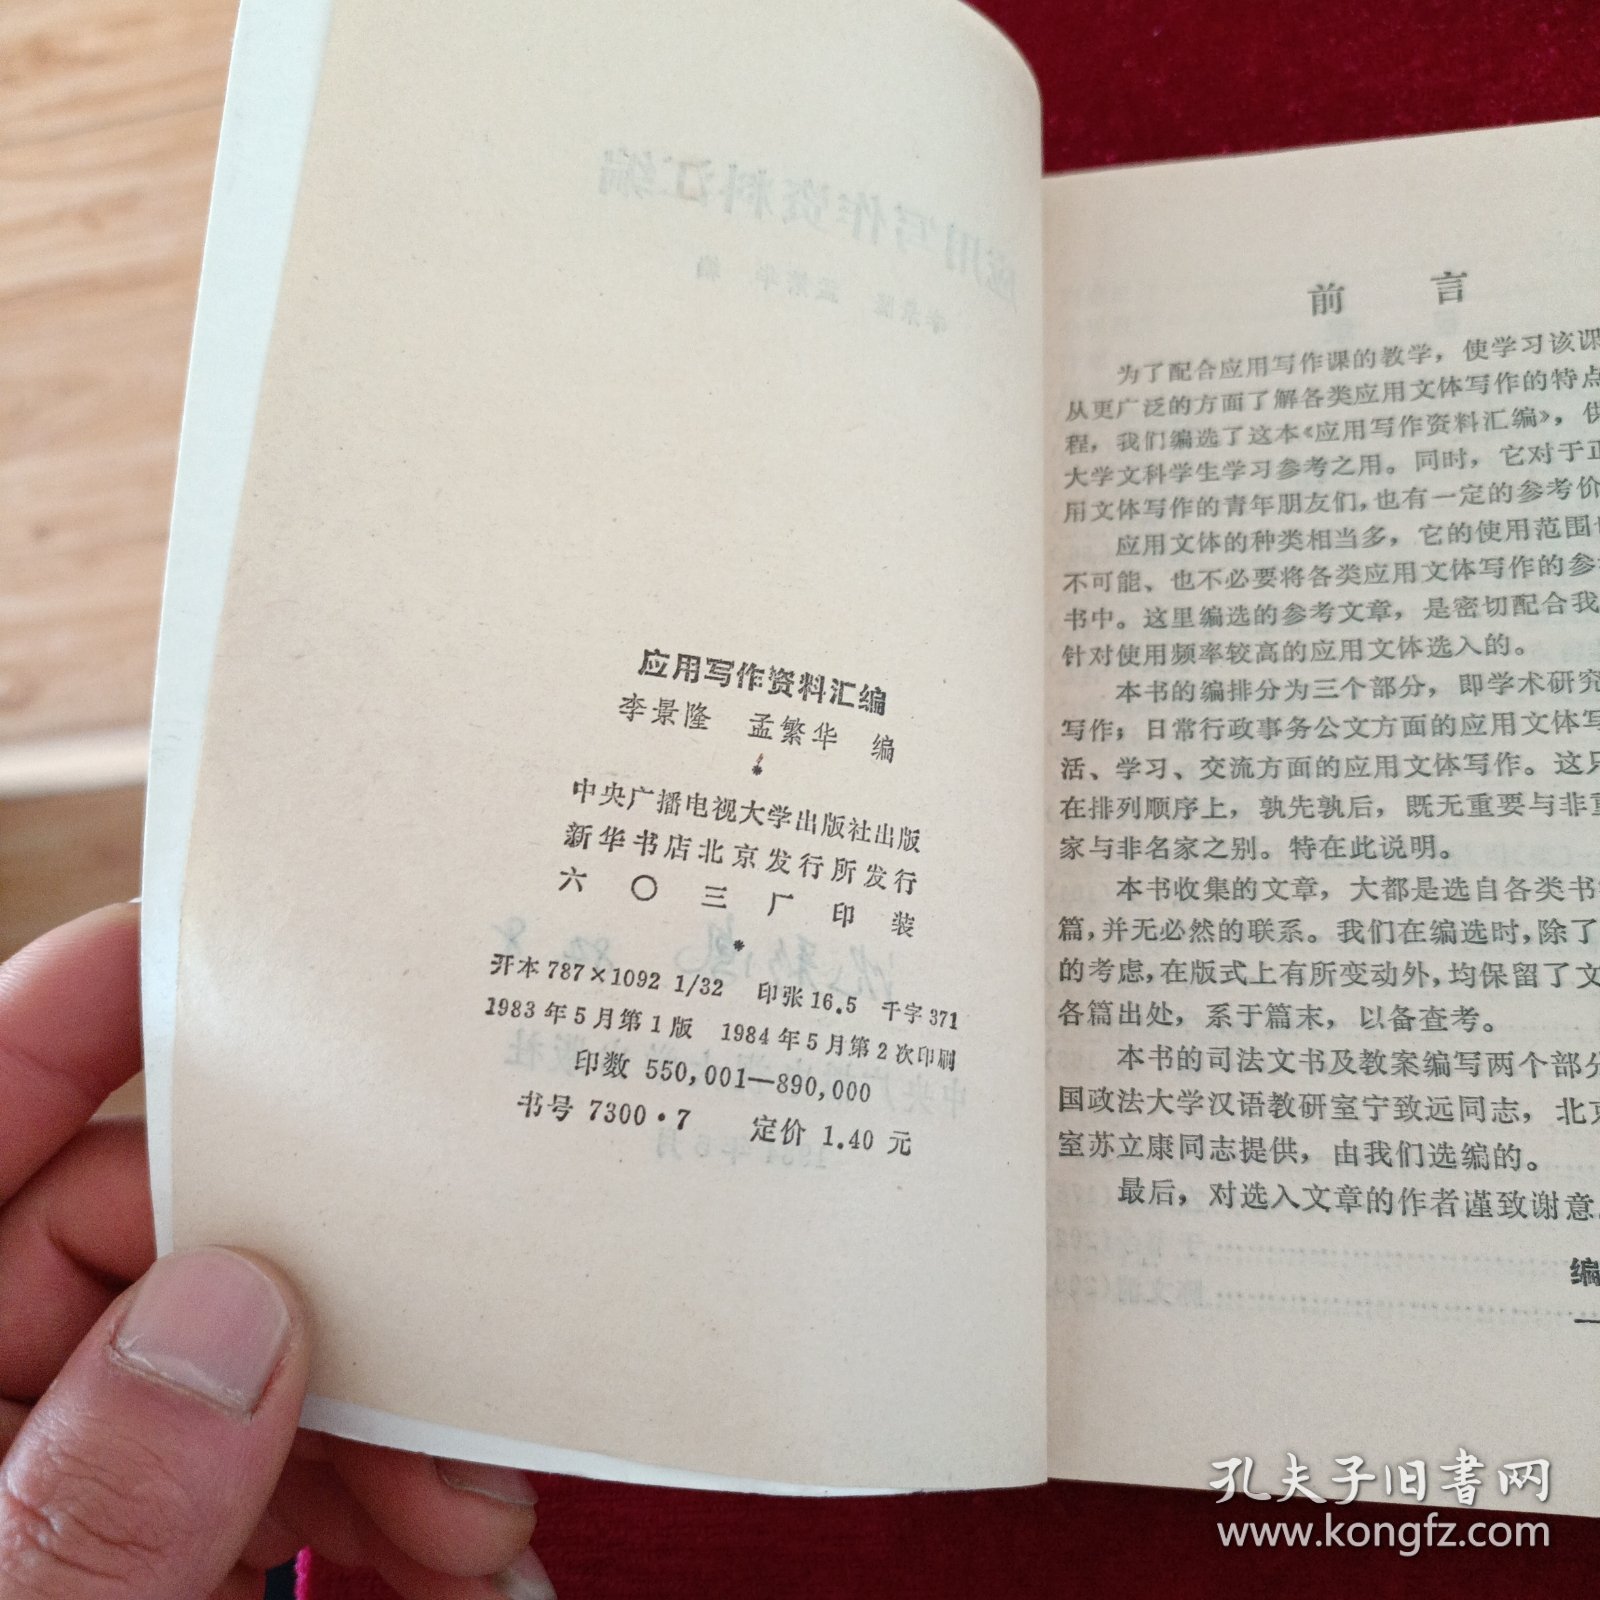 应用写作资料汇编
李景隆 孟繁华 编
*
中央广播电视大学出版社出版
新华书店北京发行所发行
六〇三厂印装
*
开本 787×1092 1/32 印张 16.5 千字 371
1983 年 5 月第 1 版 1984 年 5 月第 2 次印刷
印数 550,001—890,000
书号 7300·7 定价 1.40 元
前 言
为了配合应用写作课的教学，使学习该课
从更广泛的方面了解各类应用文体写作的特点
程，我们编选了这本《应用写作资料汇编》，供
大学文科学生学习参考之用。同时，它对于正
用文体写作的青年朋友们，也有一定的参考价
应用文体的种类相当多，它的使用范围也
不可能、也不必要将各类应用文体写作的参考
书中。这里编选的参考文章，是密切配合我
针对使用频率较高的应用文体选入的。
本书的编排分为三个部分，即学术研究
写作；日常行政事务公文方面的应用文体写
活、学习、交流方面的应用文体写作。这只
在排列顺序上，孰先孰后，既无重要与非重
家与非名家之别。特在此说明。
本书收集的文章，大都是选自各类书
篇，并无必然的联系。我们在编选时，除了
的考虑，在版式上有所变动外，均保留了文
各篇出处，系于篇末，以备查考。
本书的司法文书及教案编写两个部分
国政法大学汉语教研室宁致远同志，北京
室苏立康同志提供，由我们选编的。
最后，对选入文章的作者谨致谢意。
编
孔夫子旧书网
www.kongfz.com